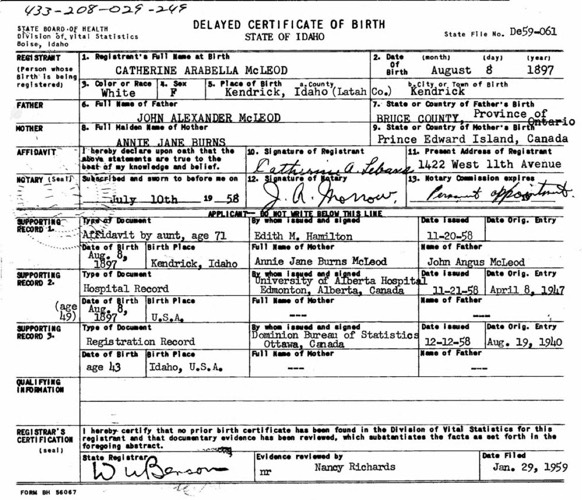 433-208-029-249
DELAYED CERTIFICATE OF BIRTH
STATE BOARD OF HEALTH
Division of Vital Statistics
Boise, Idaho
STATE OF IDAHO
State File No. De59-061
REGISTRANT
(Person whose Birth is being registered)
1. Registrant's Full Name at Birth
CATHERINE ARABELLA McLEOD
2. Date Of Birth (month) (day) (year)
August 8 1897
3. Color or Race
White
4. Sex
F
5. Place of Birth a.County
Kendrick, Idaho (Latah Co.)
b.City or Town of Birth
Kendrick
FATHER
6. Full Name of Father
JOHN ALEXANDER McLEOD
7. State or Country of Father's Birth
BRUCE COUNTY, Province of Ontario
MOTHER
8. Full Maiden Name of Mother
ANNIE JANE BURNS
9. State or Country of Mother's Birth
Prince Edward Island, Canada
AFFIDAVIT
I hereby declare upon oath that the
above statements are true to the
best of my knowledge and belief.
10. Signature of Registrant
Catherine A.
11. Present Address of Registrant
1422 West 11th Avenue
NOTARY (Seal)
Subscribed and sworn to before me on
July 10th 19 58
12. Signature of Notary
J. A. Morrow
13. Notary Commission expires
Permanent appointment
APPLICANT - DO NOT WRITE BELOW THIS LINE
SUPPORTING RECORD 1.
Type of Document
Affidavit by aunt, age 71
By whom issued and signed
Edith M. Hamilton
Date Issued
11-20-58
Date Orig. Entry
Date of Birth
Aug. 8, 1897
Birth Place
Kendrick, Idaho
Full Name of Mother
Annie Jane Burns McLeod
Name of Father
John Angus McLeod
SUPPORTING RECORD 2.
(age 49)
Type of Document
Hospital Record
By whom issued and signed
University of Alberta Hospital
Edmonton, Alberta, Canada
Date Issued
11-21-58
Date Orig. Entry
April 8, 1947
Date of Birth
Aug. 8, 1897
Birth Place
U.S.A.
Full Name of Mother
---
Name of Father
---
SUPPORTING RECORD 3.
Type of Document
Registration Record
By whom issued and signed
Dominion Bureau of Statistics
Ottawa, Canada
Date Issued
12-12-58
Date Orig. Entry
Aug. 19, 1940
Date of Birth
age 43
Birth Place
Idaho, U.S.A.
Full Name of Mother
---
Name of Father
---
QUALIFYING INFORMATION
REGISTRAR'S CERTIFICATION
(seal)
I hereby certify that no prior birth certificate has been found in the Division of Vital Statistics for this
registrant and that documentary evidence has been reviewed, which substantiates the facts as set forth in the
foregoing abstract.
State Registrar
W W Benson
Evidence reviewed by
mr Nancy Richards
Date Filed
Jan. 29, 1959
FORM BH 56067